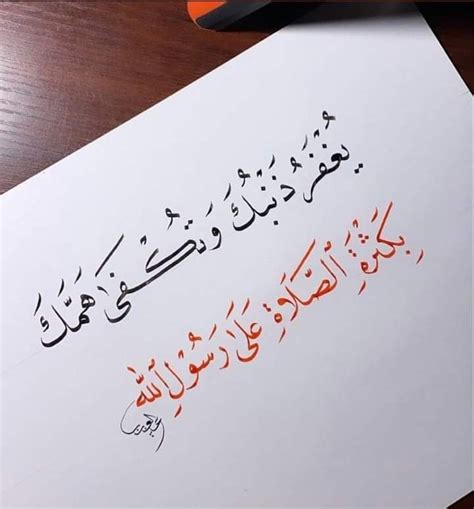 يُغْفَرُ ذَنْبُكَ وَتُكْفَى هَمَّكَ
بِكَثْرَةِ ٱلصَّلَاةِ عَلَىٰ رَسُوْلِ ٱللّٰه